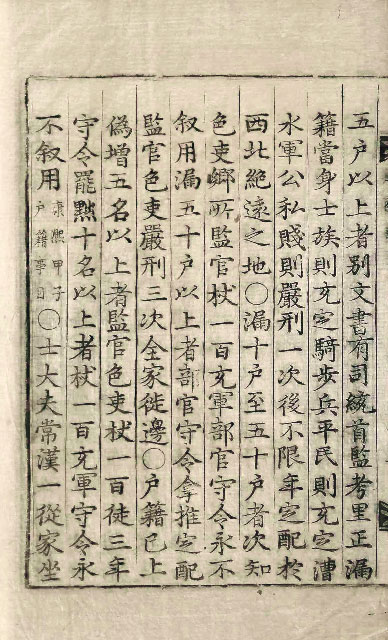 五户以上者別文書有司統首監考里正漏
籍當身士族則充定騎步兵平民則充定漕
水軍公私賤則嚴刑一次後不限年定配於
西北絶遠之地○漏十户至五十户者次知
色吏鄉所監官杖一百充軍部官守令永不
叙用漏五十户以上者部官守令拿推定配
監官色吏嚴刑三次全家徙邊○户籍已上
僞增五名以上者監官色吏杖一百徒三年
守令罷黜十名以上者杖一百充軍守令永
不叙用康熙甲子户籍事目○士大夫常漢一從家坐